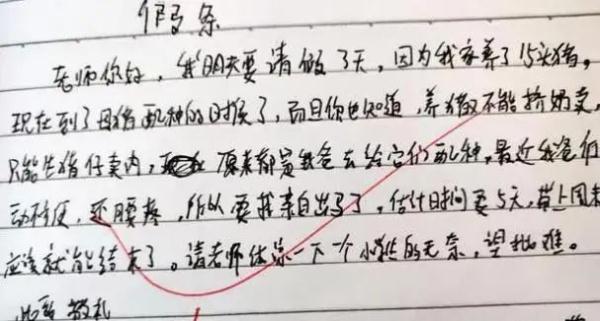 假条
老师你好，我明天要请假3天，因为我家养了15头猪，
现在到了母猪配种的时候了，而且你也知道，养猪不能挤奶卖，
只能生猪仔卖肉，原来都是我爸去给它们配种，最近我爸行
动不便，还腰疼，所以要我亲自出马了，估计时间要5天，带上周末
应该就能结束了。请老师体谅一下一个小生的无奈，望批准。
此致 敬礼